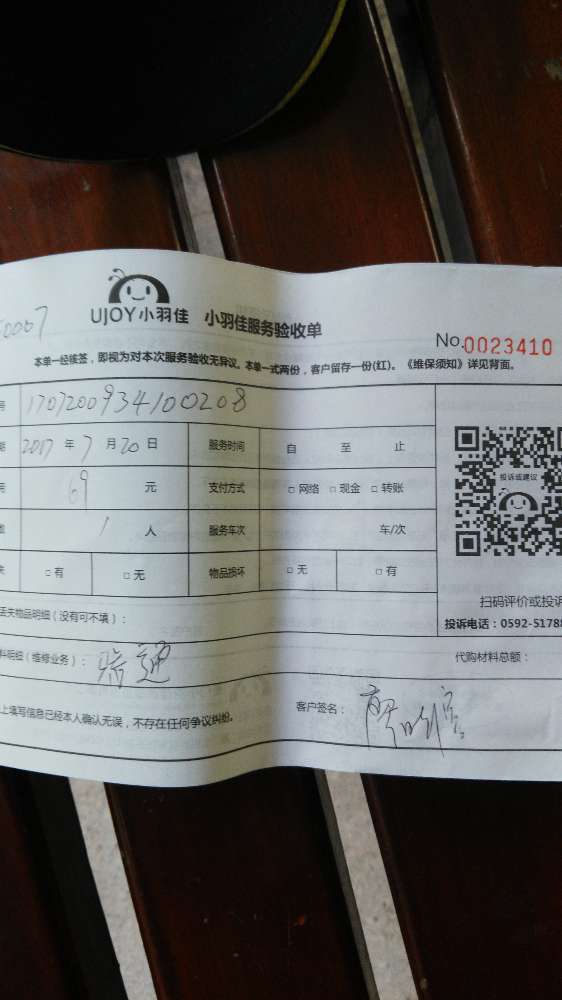 0007
UJOY小羽佳 小羽佳服务验收单
No.0023410
本单一经核签，即视为对本次服务验收无异议。本单一式两份，客户留存一份(红)。《维保须知》详见背面。
号 1707200934100208
期 2017 年 7 月 20 日 服务时间 自 至 止
用 69 元 支付方式 □ 网络 □ 现金 □ 转账
1 人 服务车次 车/次
失 □ 有 □ 无 物品损坏 □ 无 □ 有
投诉或建议
扫码评价或投诉
投诉电话：0592-51788
丢失物品明细（没有可不填）：
料明细（维修业务）： 疏通 代购材料总额：
上填写信息已经本人确认无误，不存在任何争议纠纷。 客户签名：